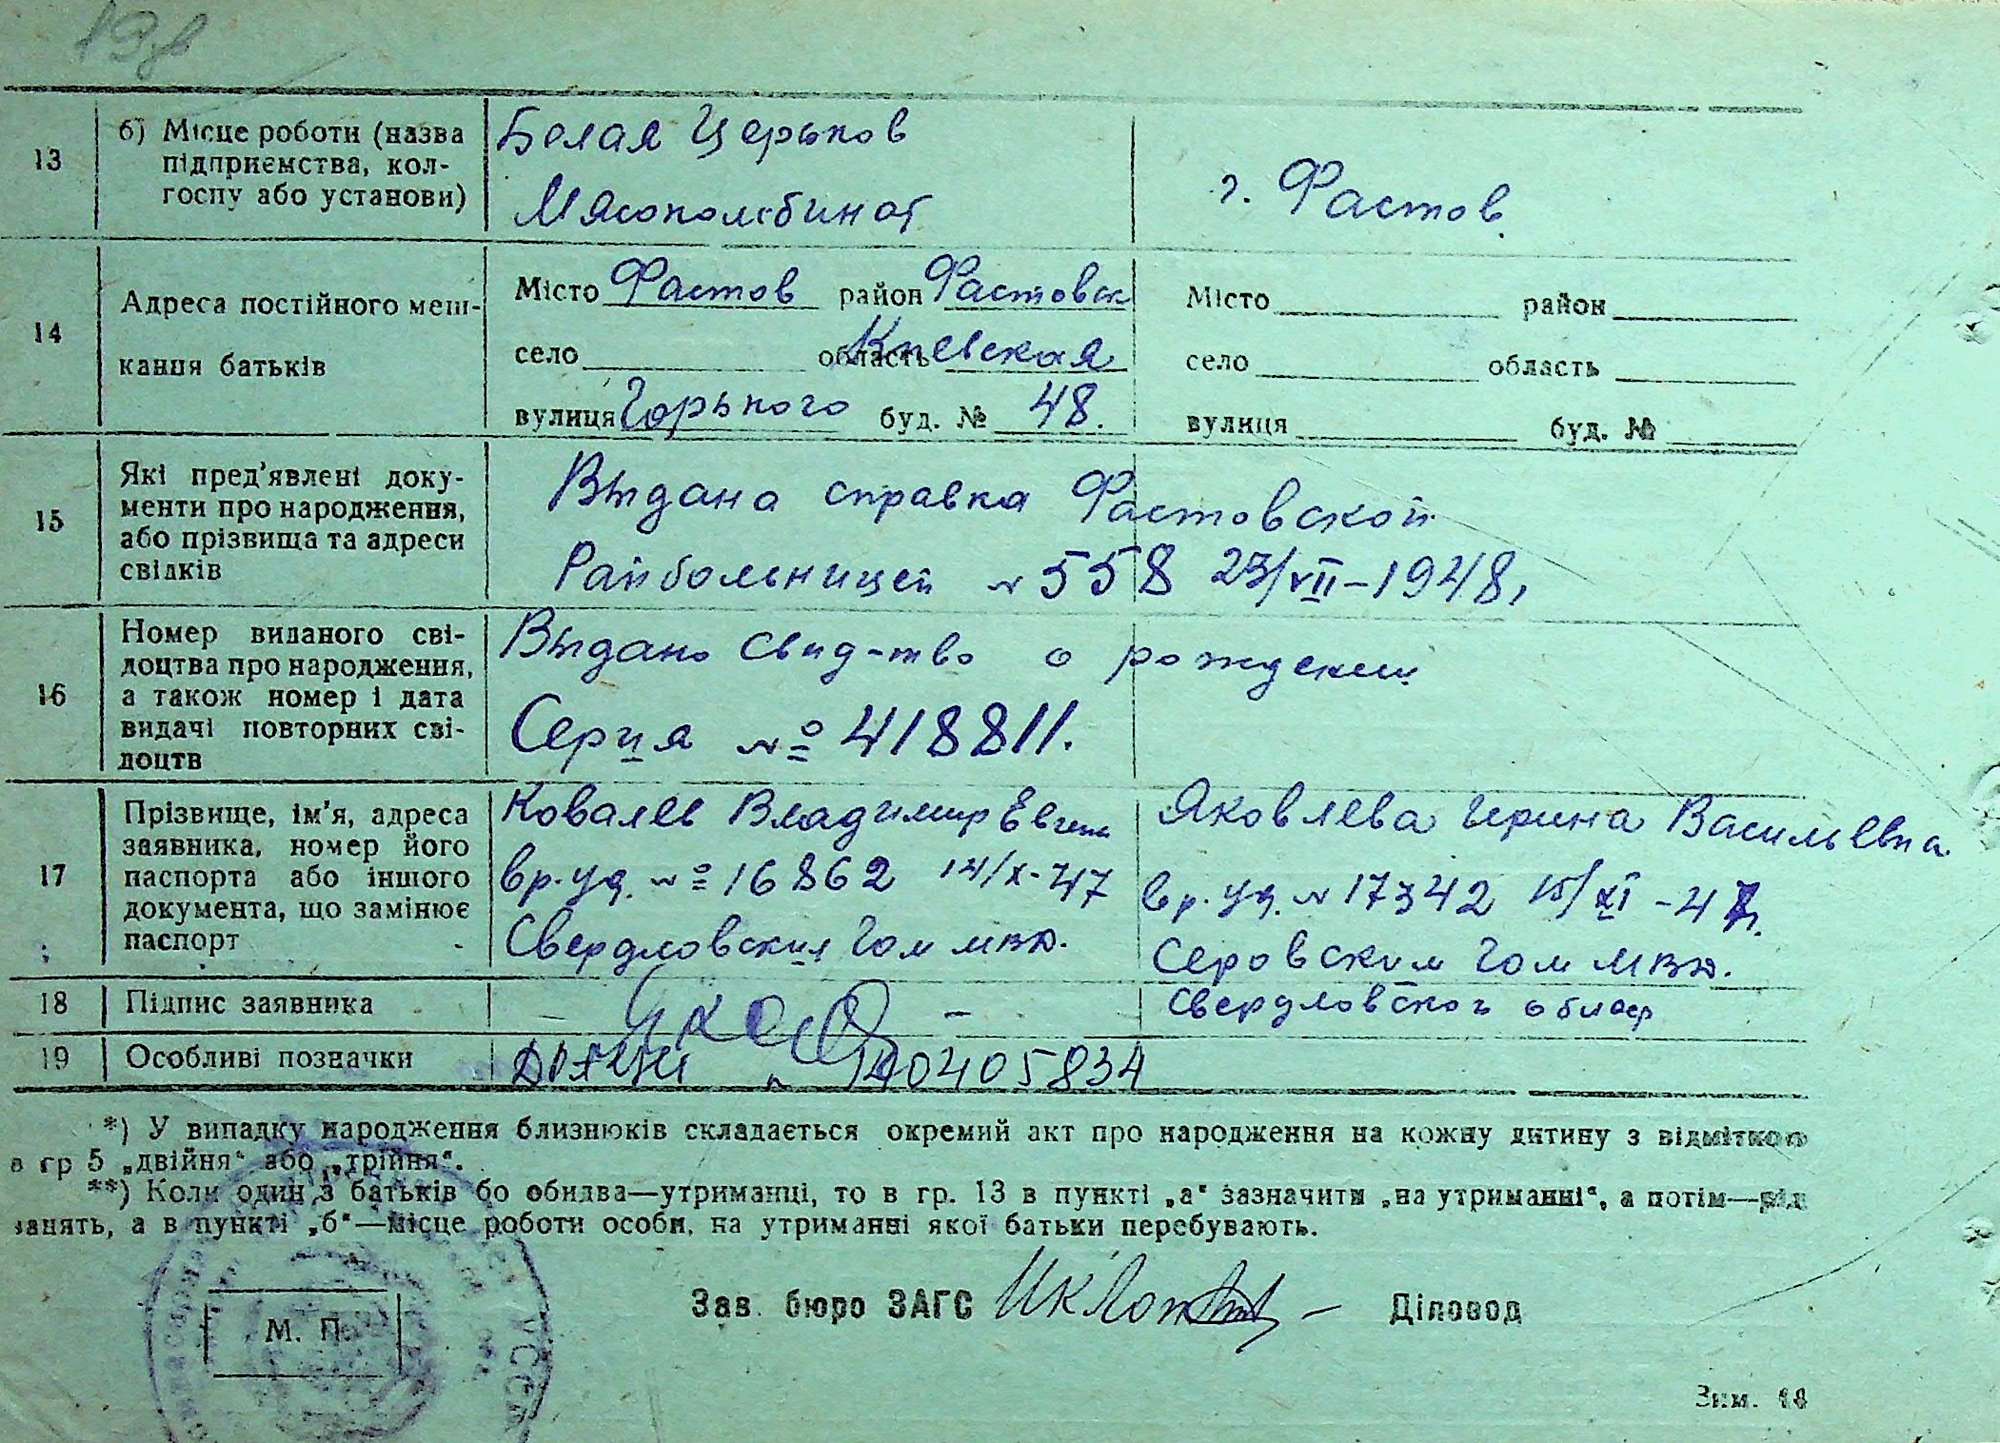 13 б) Місце роботи (назва підприємства, колгоспу або установи)
Белая Церьков
Мясокомбинат
г. Фастов.
14 Адреса постійного мешкання батьків
Місто Фастов район Фастовск
село область Киевская
вулиця Горького буд. № 48.
Місто район
село область
вулиця буд. №
15 Які пред'явлені документи про народження, або прізвища та адреси свідків
Выдана справка Фастовской
Райбольницей № 558 23/VII-1948,
16 Номер виданого свідоцтва про народження, а також номер і дата видачі повторних свідоцтв
Выдано Свид-тво о рождении
Серия № 418811.
17 Прізвище, ім'я, адреса заявника, номер його паспорта або іншого документа, що замінює паспорт
Ковалев Владимир Евген
вр. уд. № 16862 14/X-47
Свердловским Гом МВД.
Яковлева Ирина Васильевна
вр. уд. № 17342 15/XI-47.
Серовским Гом МВД.
Свердловской
18 Підпис заявника
19 Особливі позначки
140405834
*) У випадку народження близнюків складається окремий акт про народження на кожну дитину з відміткою
в гр 5 „двійня“ або „трійня“.
**) Коли один з батьків бо обидва—утриманці, то в гр. 13 в пункті „а“ зазначити „на утриманні“, а потім—рід
занять, а в пункті „б“—місце роботи особи, на утриманні якої батьки перебувають.
М. П.
Зав. бюро ЗАГС
Діловод
Зим. 18